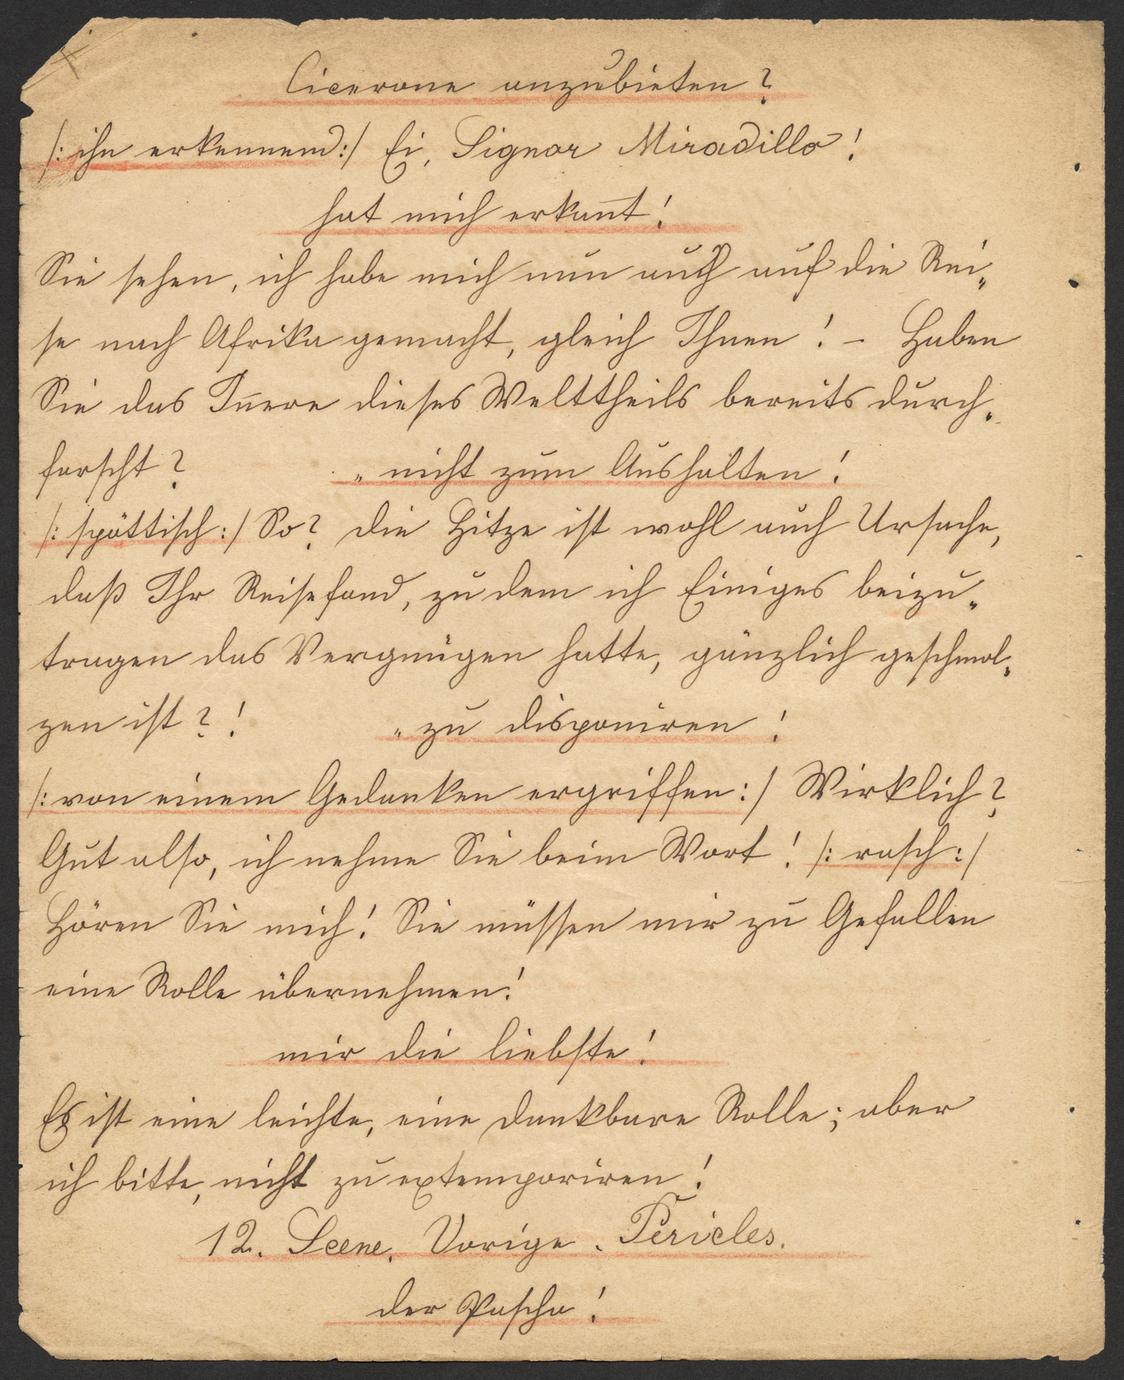 Cicerone anzubieten?
/: ihn erkennend :/ Ei, Signor Miradillo!
hat mich erkannt!
Sie sehen, ich habe mich nun auch auf die Rei„
se nach Afrika gemacht, gleich Ihnen! – Haben
Sie das Innere dieses Welttheils bereits durch„
forscht? „ nicht zum Aushalten!
/: spöttisch :/ So? die Hitze ist wohl auch Ursache,
daß Ihr Reisefond, zu dem ich Einiges beizu„
tragen das Vergnügen hatte, gänzlich geschmol„
zen ist?! „ zu disponiren!
/: von einem Gedanken ergriffen :/ Wirklich?
Gut also, ich nehme Sie beim Wort! /: rasch :/
Hören Sie mich! Sie müssen mir zu Gefallen
eine Rolle übernehmen!
mir die liebste!
Es ist eine leichte, eine dankbare Rolle; aber
ich bitte, nicht zu extemporiren!
12. Scene. Vorige. Pericles.
der Pascha!